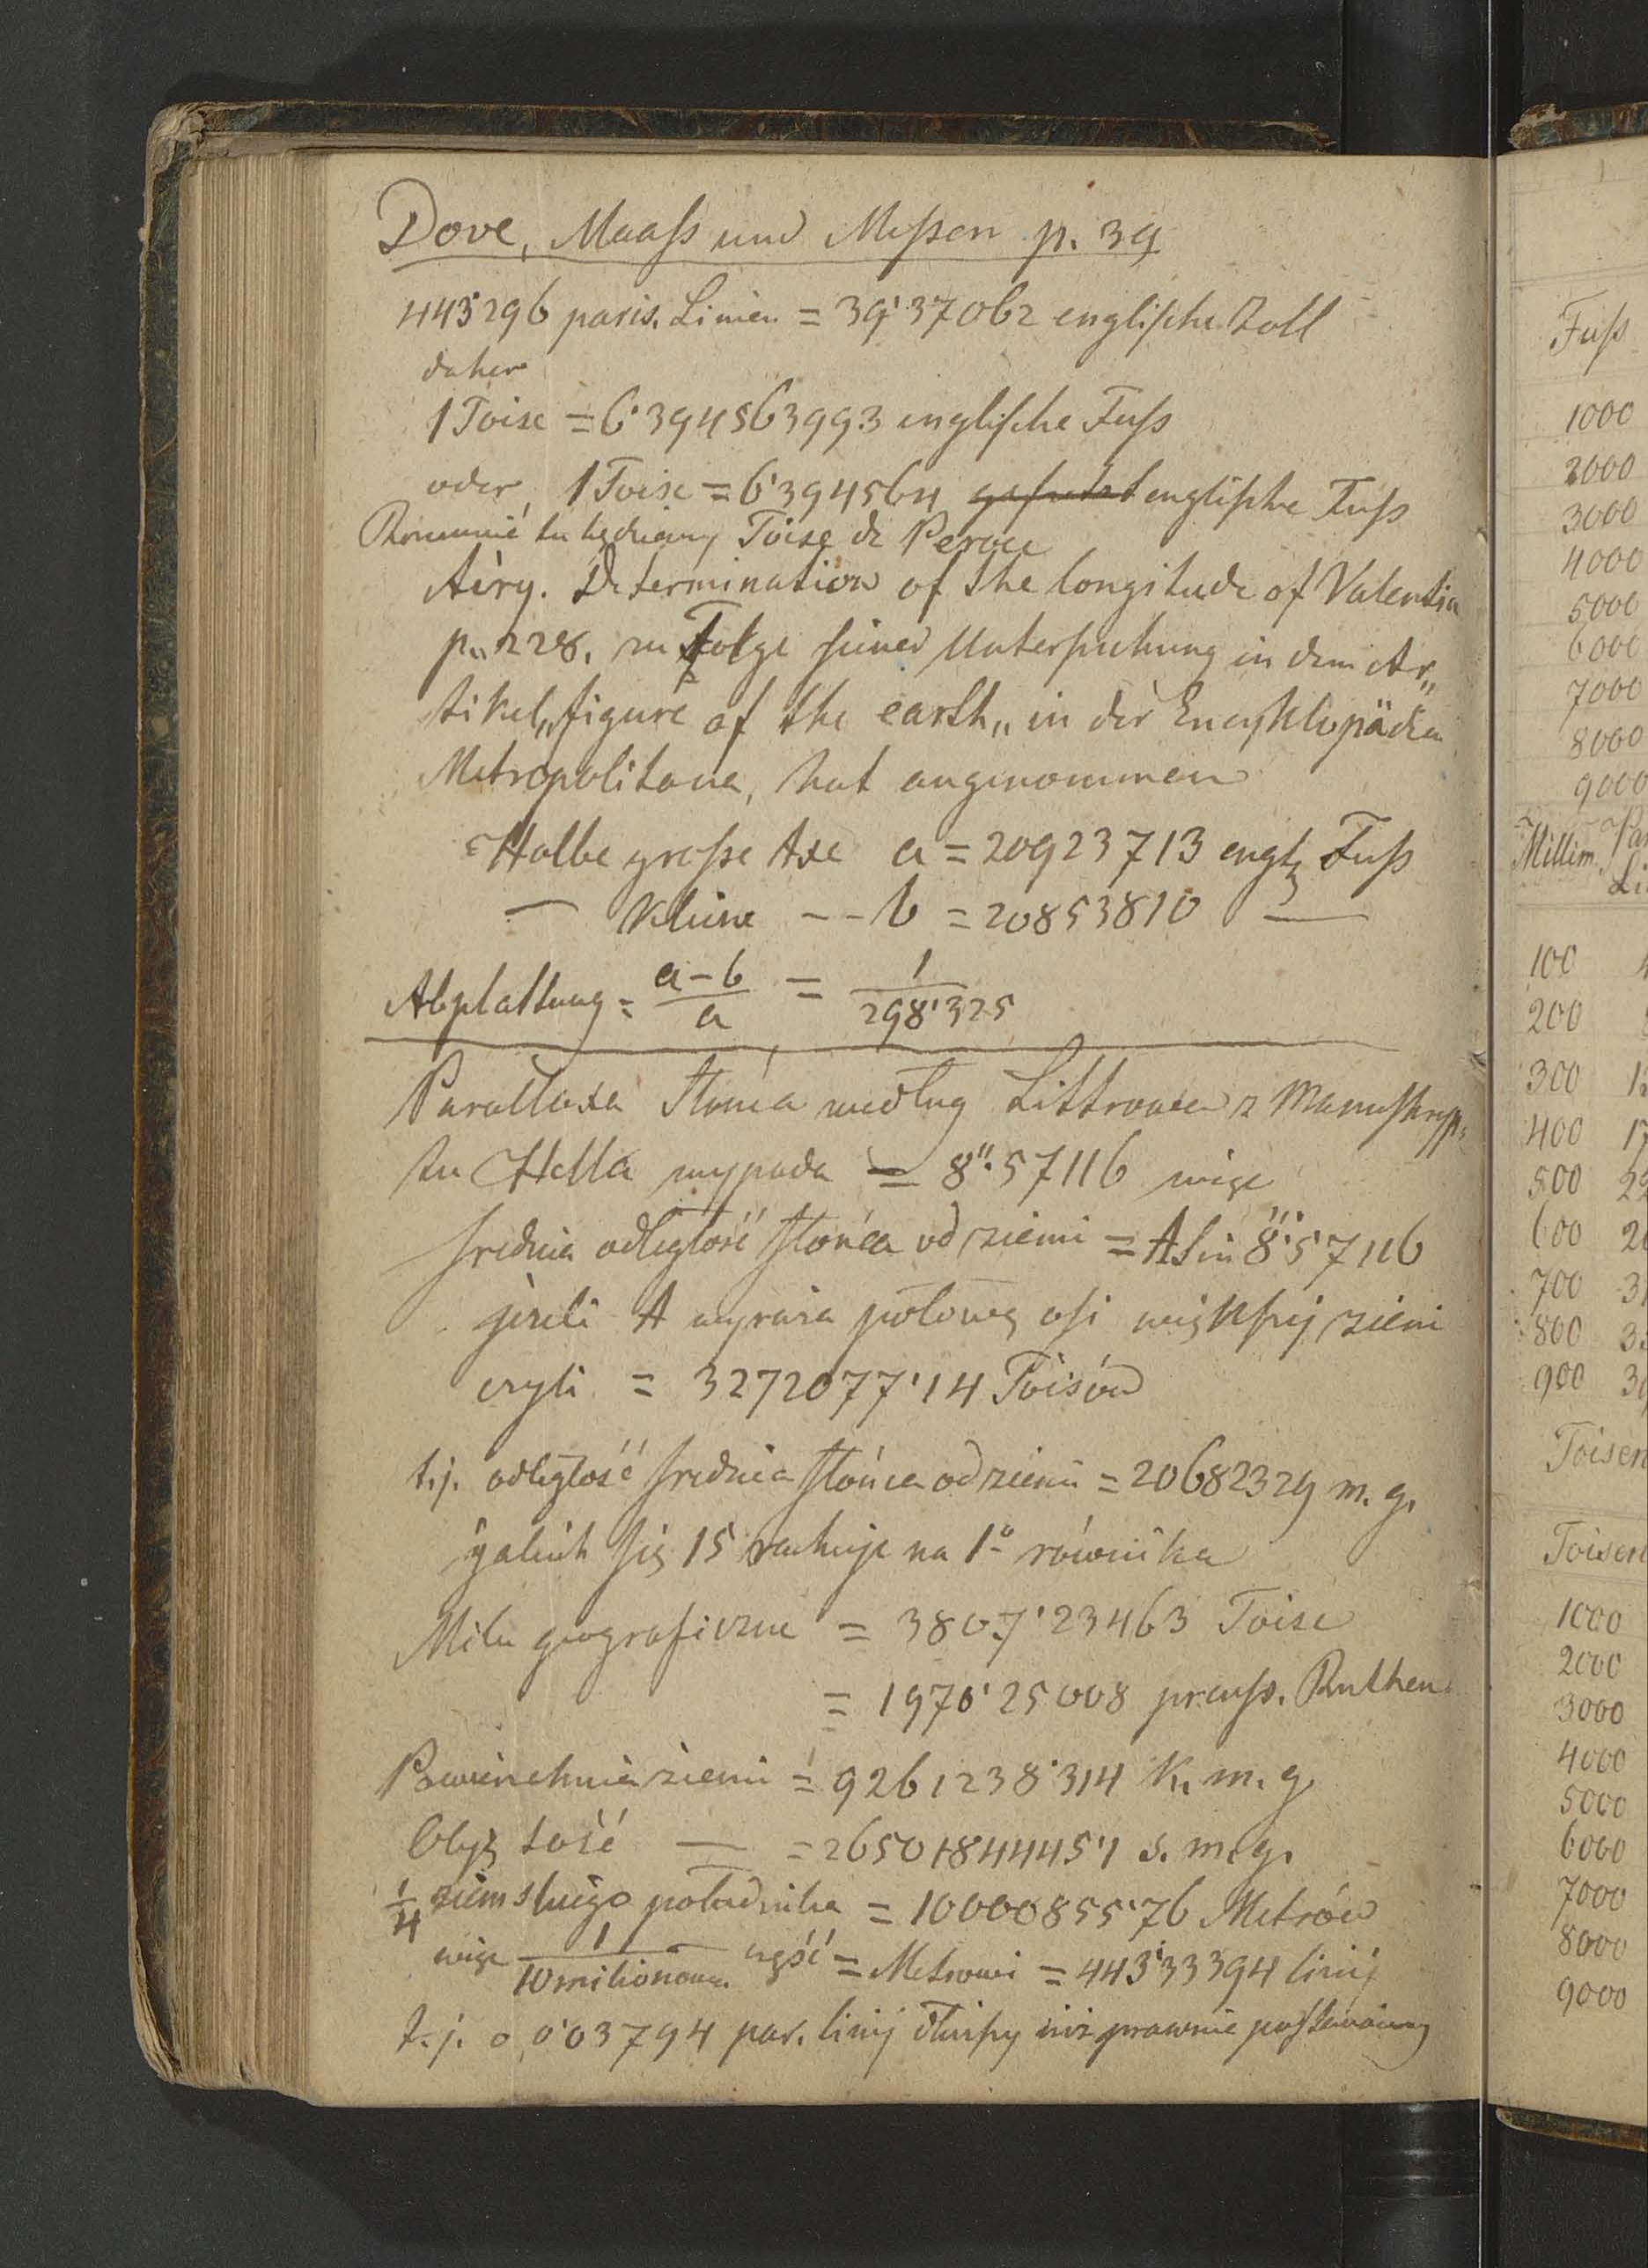 Dove, Maaß und Meßen p. 39
443'296 paris. Linien = 39'37062 englische Zoll
daher
1 Toise = 6'394563993 englische Fuß
oder, 1 Toise = 6'394564 englische Fuß
Rozumié tu będziemy Toise de Perou
Airy. Determination of the longitude of Valentia
p. 228. zu Folge seiner Untersuchung in dem Ar„
tikel „figure of the earth„ in der Encyklopädia
Metropolitana, hat angenommen
Halbe große Axe a = 20923713 engl. Fuß
— kleine - - b = 20853810 —
Abplattung = a-b / a = 1 / 298'325
Parallaxa Słońca według Littrowa z Manuskryp„
tu Hella wypada = 8"57116 więc
srednia odległość słońca od ziemi = A Sin 8"57116
jeżeli A wyraża połowę osi większej ziemi
czyli = 3272077'14 Toisów
t.j. odległość srednia słońca od ziemi = 20682329 m. g.
jakich się 15 rachuje na 1° równika
Mila geograficzna = 3807'23463 Toise
= 1970'25008 preuß. Ruthen
Powierzchnia ziemi = 9261238'314 k. m. g
Objętość — = 2650184445'1 s. m. g.
1/4 ziemskiego południka = 10000855'76 Metrów
więc 1 / 10 milionowa część = Metrowi = 443'33394 linij
t.j. o 0'03794 par. linij dłuższy niż prawnie postanowiony
Fuß
1000
2000
3000
4000
5000
6000
7000
8000
9000
Millim.
100
200
300
400
500
600
700
800
900
Toisen
Toisen
1000
2000
3000
4000
5000
6000
7000
8000
9000